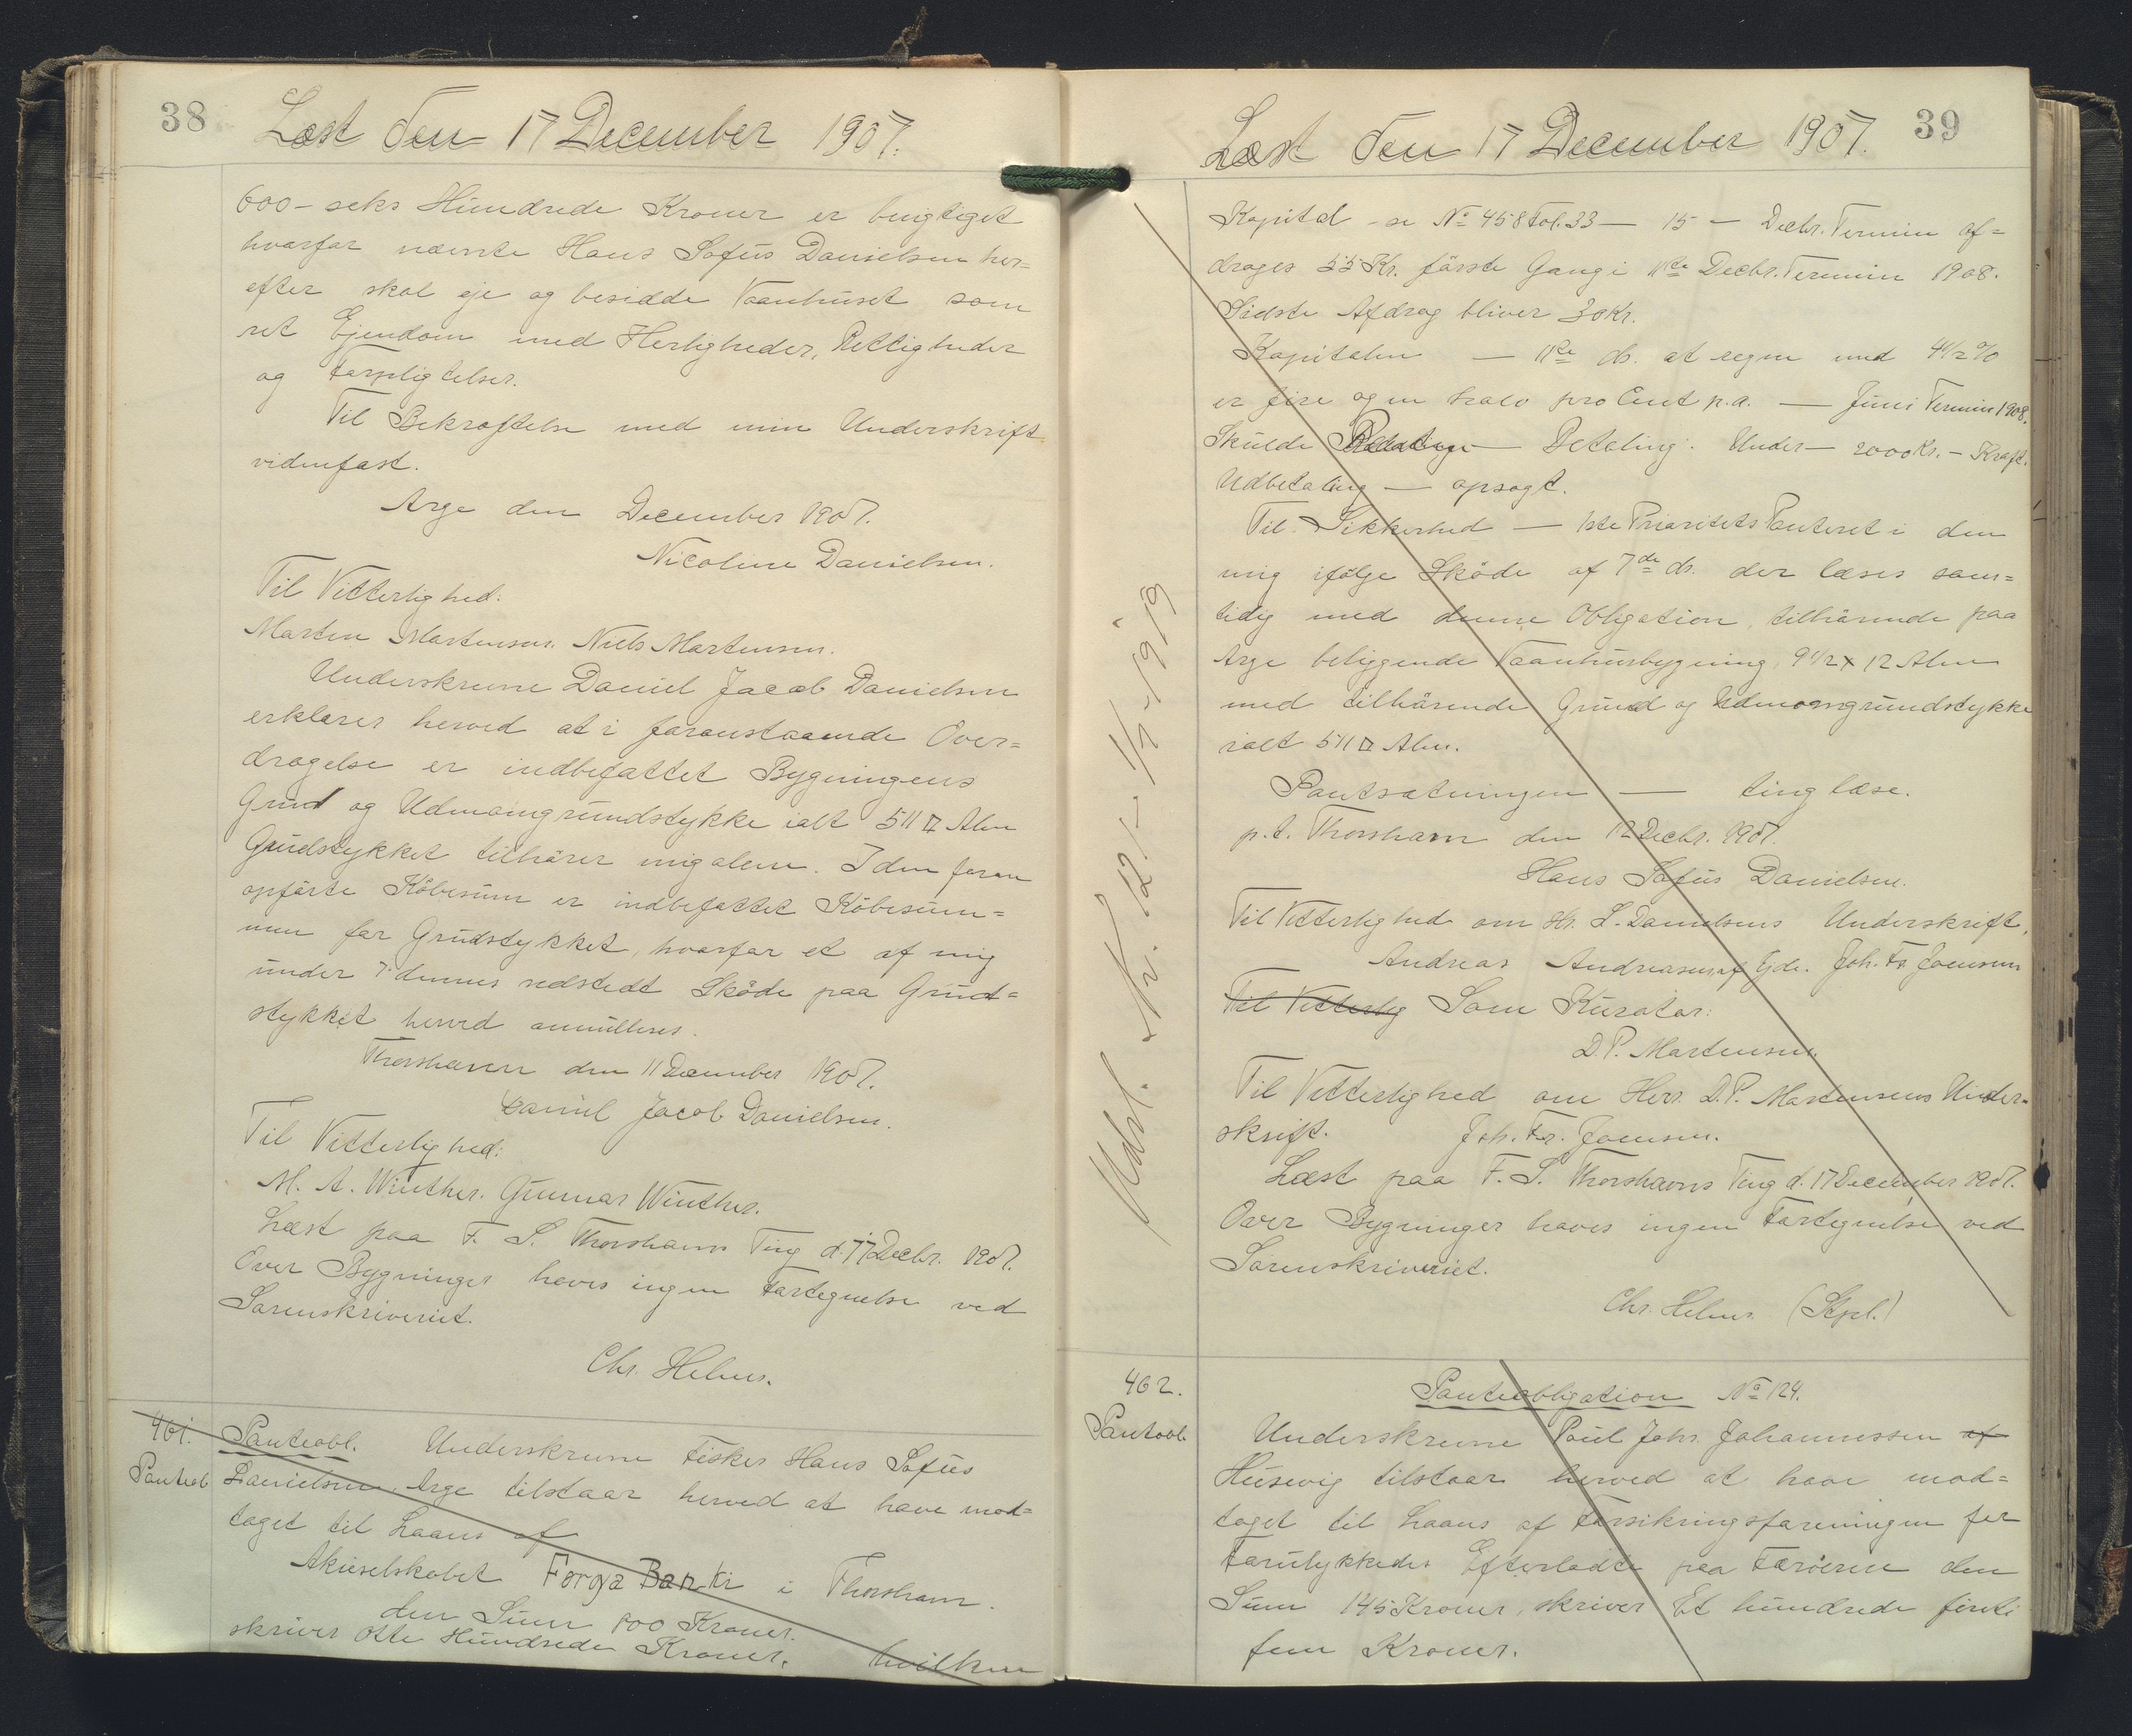 38
Læst den 17 December 1907.
600 - seks Hundrede Kroner er berigtiget
hvorfor nævnte Hans Sofus Danielsen her=
efter skal eje og besidde Vaanhuset som
ret Ejendom med Herligheder, Rettigheder
og Forpligtelser.
Til Bekræftelse med min Underskrift
vidnefast.
Arge den December 1907.
Nicoline Danielsen.
Til Vitterlighed:
Marten Martensen. Niels Martensen.
Underskrevne Daniel Jacob Danielsen
erklærer herved at i foranstaaende Over=
dragelse er indbefattet Bygningens
Grund og Udmoingrundstykke ialt 511 □ Alen
Grudstykket tilhører mig alene. I den foran
opførte Købesum er indbefattet Købesum=
men for Grudstykket, hvorfor et af mig
under 7' dennes udstedt Skøde paa Grud=
stykket herved annulleres.
Thorshavn den 11 December 1907.
Daniel Jacob Danielsen.
Til Vitterlighed:
M. A. Winther. Gunnar Winther.
Læst paa F. S. Thorshavns Ting d. 17 Decbr. 1907.
Over Bygninger haves ingen Fortegnelse ved
Sorenskriveriet.
Chr. Helms.
461.
Panteob
Panteobl. Underskrevne Fisker Hans Sofus
Danielsen, Arge tilstaar herved at have mod=
taget til Laans af
Aktieselskabet Føroya Banki i Thorshavn.
den Sum 800 Kroner.
skriver Otte Hundrede Kroner, hvilken
39
Læst den 17 December 1907.
Kapital - se No 458 Fol. 33 — 15 — Decbr. Termin af=
drages 55 Kr. første Gang i 11te Decbr. Termin 1908.
Sidste Afdrag bliver 30 Kr.
Kapitalen — 11te ds. at regne med 4 1/2 %
er fire og en halv pro Cent p.a. — Juni Termin 1908.
Skulde — Betaling. Under — 2000 Kr. — Kraft.
Udbetaling — opsagt.
Til Sikkerhed — 1ste Prioritets Panteret i den
mig ifølge Skøde af 7de ds. der læses sam=
tidig med denne Obligation, tilhørende paa
Arge beliggende Vaanhusbygning, 9 1/2 x 12 Alen
med tilhørende Grund og Udmoingrundstykke
ialt 511 □ Alen.
Pantsætningen — ting læse.
p.t. Thorshavn den 12 Decbr. 1907.
Hans Sofus Danielsen.
Til Vitterlighed om H. S. Danielsens Underskrift,
Andreas Andreasen af Ejde. Joh. Fr Joensen
Til Vitterlig Som Kurator:
D. P. Martensen.
Til Vitterlighed om Herr. D. P. Martensens Under=
skrift. Joh. Fr. Joensen.
Læst paa F. S. Thorshavns Ting d. 17 December 1907.
Over Bygninger haves ingen Fortegnelse ved
Sorenskriveriet.
Chr. Helms. (Stpl.)
Udsl. 1/5-1919
462.
Panteobl.
Panteobligation No 124.
Underskrevne Poul Johs. Johannessen af
Husevig tilstaar herved at have mod=
taget til Laans af Forsikringsforeningen for
Forulykkedes Efterladte paa Færøerne den
Sum 145 Kroner, skriver Et hundrede firti
fem Kroner.